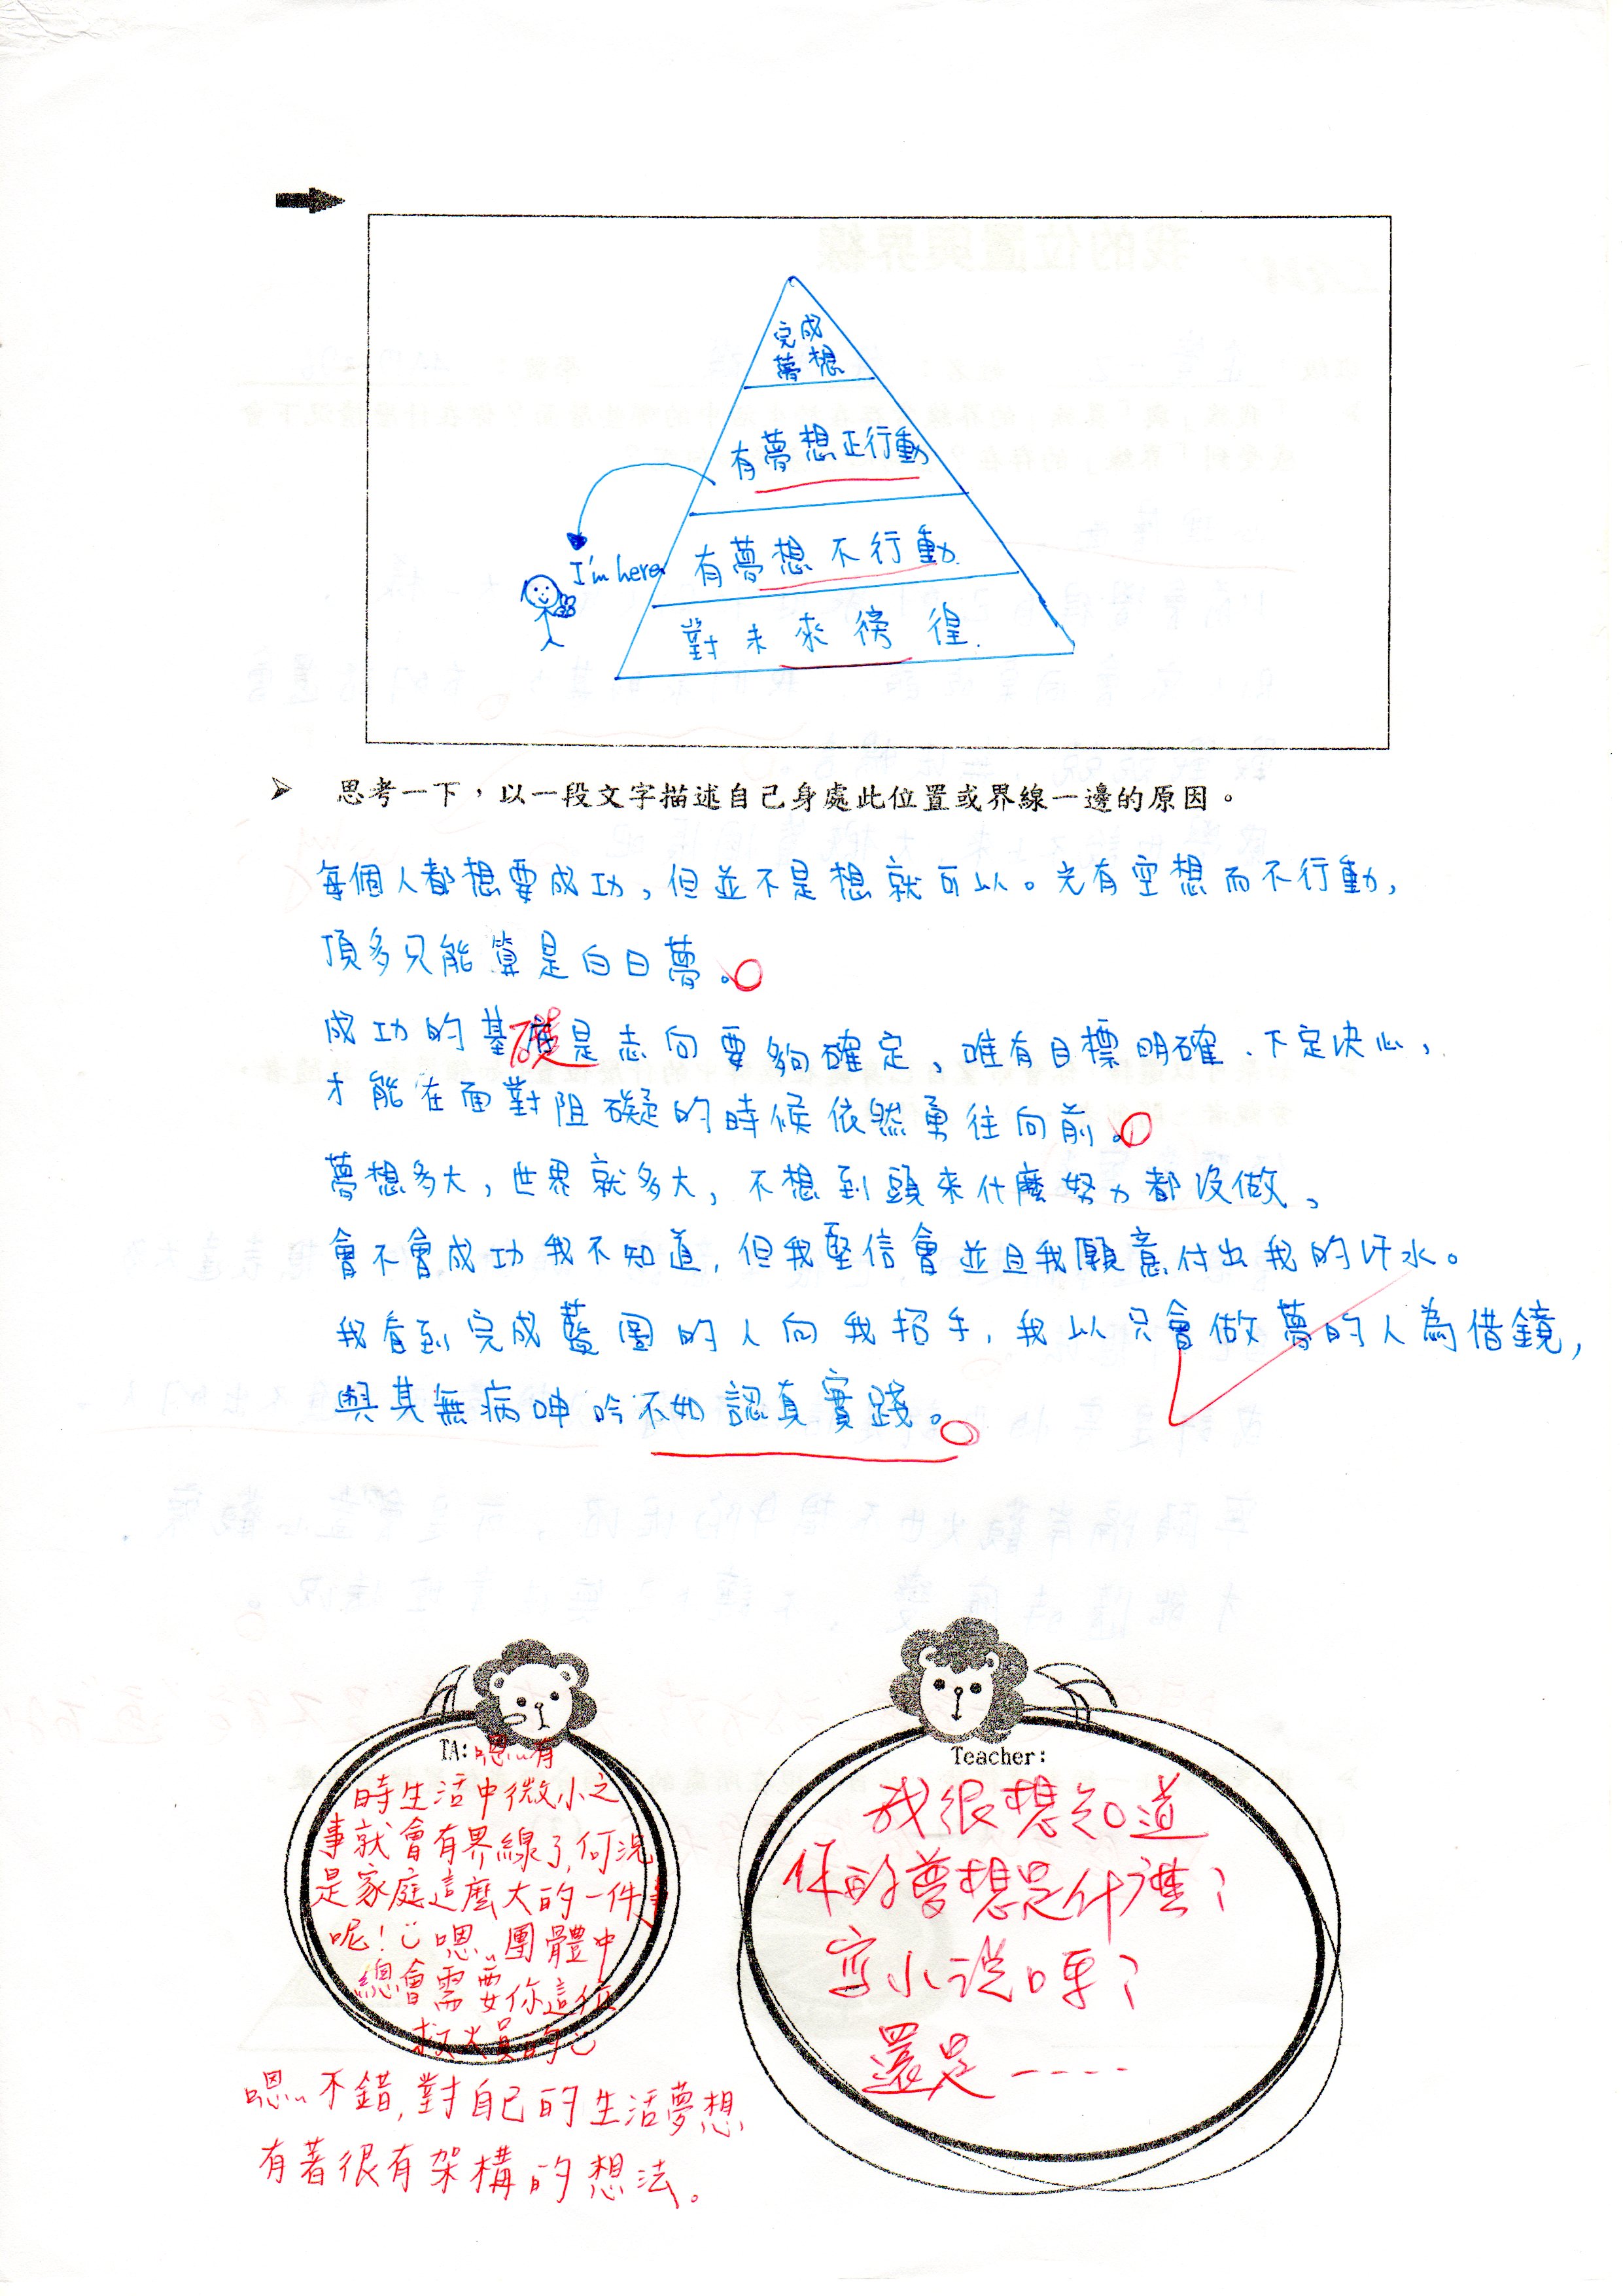 完成
夢想
有夢想正行動
I'm here
有夢想不行動.
對未來徬徨.
思考一下，以一段文字描述自己身處此位置或界線一邊的原因。
每個人都想要成功，但並不是想就可以。光有空想而不行動，
頂多只能算是白日夢。
成功的基礎是志向要夠確定、唯有目標明確、下定決心，
才能在面對阻礙的時候依然勇往向前。
夢想多大，世界就多大，不想到頭來什麼努力都沒做、
會不會成功我不知道，但我堅信會並且我願意付出我的汗水。
我看到完成藍圖的人向我招手，我以只會做夢的人為借鏡，
與其無病呻吟不如認真實踐。
TA:嗯…有
時生活中微小之
事就會有界線了,何況
是家庭這麼大的一件事
呢!嗯…團體中
總會需要你這位
救火員的
嗯…不錯,對自己的生活夢想
有著很有架構的想法。
Teacher:
我很想知道
你的夢想是什麼？
寫小說嗎？
還是----